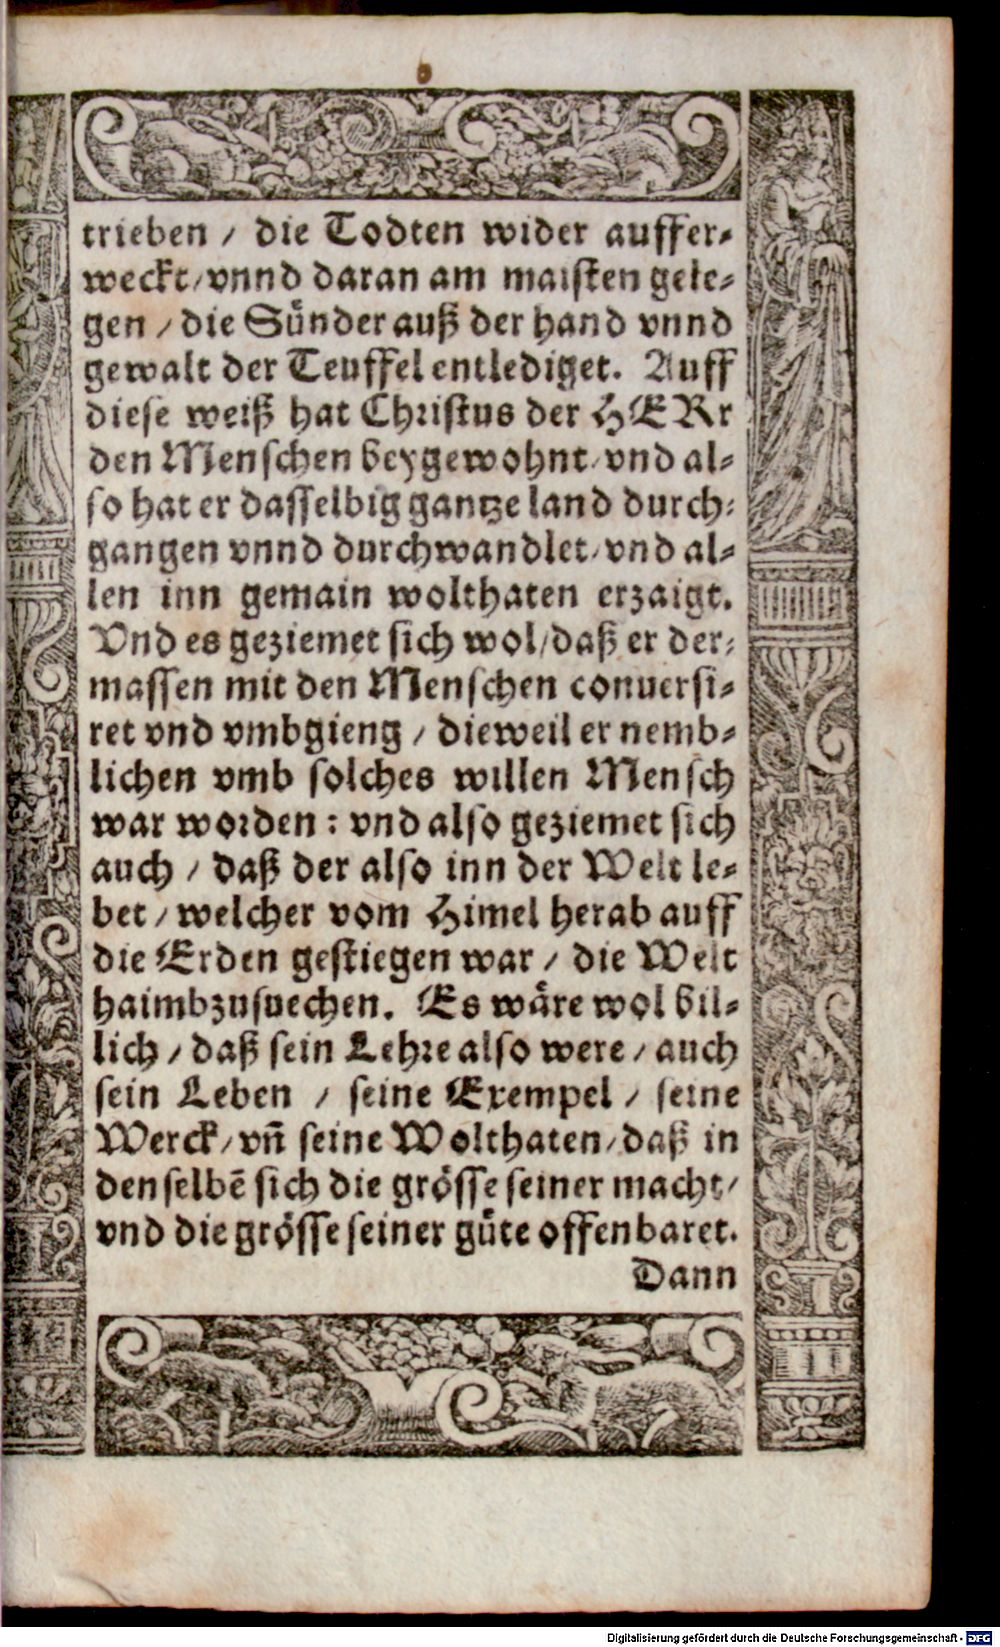 trieben / die Todten wider auffer-
weckt / vnnd daran am maisten gele-
gen / die Sünder auß der hand vnnd
gewalt der Teuffel entlediget. Auff
diese weiß hat Christus der HERr
den Menschen beygewohnt / vnd al-
so hat er dasselbig gantze land durch-
gangen vnnd durchwandlet / vnd al-
len inn gemain wolthaten erzaigt.
Vnd es geziemet sich wol / daß er der-
massen mit den Menschen conuersi-
ret vnd vmbgieng / dieweil er nemb-
lichen vmb solches willen Mensch
war worden : vnd also geziemet sich
auch / daß der also inn der Welt le-
bet / welcher vom Himel herab auff
die Erden gestiegen war / die Welt
haimbzusuechen. Es wäre wol bil-
lich / daß sein Lehre also were / auch
sein Leben / seine Exempel / seine
Werck / vñ seine Wolthaten / daß in
denselbē sich die grösse seiner macht /
vnd die grösse seiner güte offenbaret.
Dann
Digitalisierung gefördert durch die Deutsche Forschungsgemeinschaft - DFG